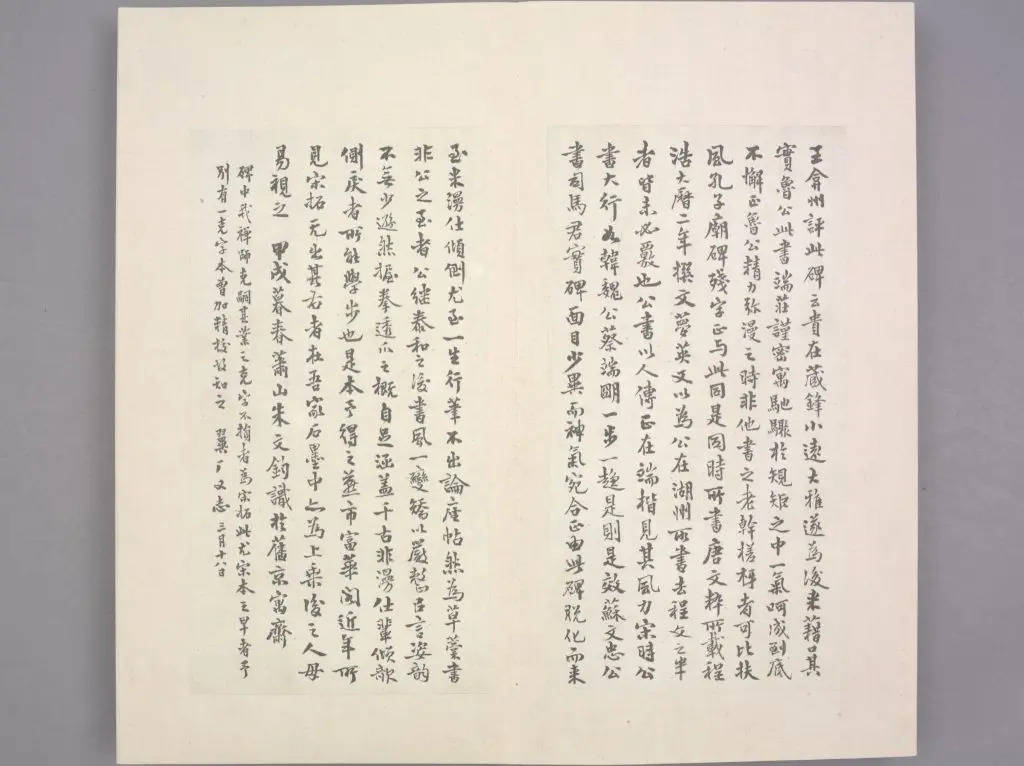 王弇州評此碑云貴在藏鋒小遠大雅遂為後來藉口其
實魯公此書端莊謹密寓馳驟於規矩之中一氣呵成到底
不懈正魯公精力弥漫之時非他書之老幹槎枒者可比扶
風孔子廟碑殘字正与此同是同時所書唐文粹所載程
浩大曆二年撰文夢英又以為公在湖州所書去程文之半
者皆未必覈也公書以人傳正在端楷見其風力宋時公
書大行如韓魏公蔡端明一步一趨是則是效蘇文忠公
書司馬君實碑面目少異而神氣宛合正由此碑脫化而來
至米漫仕傾倒尤至一生行筆不出論座帖然為草藁書
非公之至者公繼泰和之後書風一變矯以嚴整以言姿韵
不無少遜然握拳透爪之概自足涵蓋千古非漫仕輩傾欹
側戾者所能學步也是本予得之燕市富華閣近年所
見宋拓无出其右者在吾家石墨中亦為上乘後之人毋
易視之 甲戌暮春蕭山朱文鈞識於舊京寓齋
碑中我禪師克嗣其業之克字不損者為宋拓此尤宋本之早者予
別有一克字本曾加精校故知之 翼厂又志 三月十八日